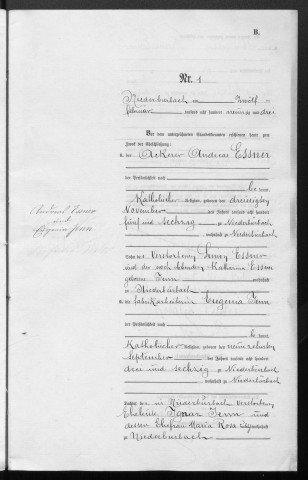 B.
Nr. 1
Niederburbach am zwölf
Februar tausend acht hundert neunzig und drei
Vor dem unterzeichneten Standesbeamten erschienen heute zum
Zweck der Eheschließung:
1. der Ackerer Andreas Essner
der Persönlichkeit nach
kannt,
Katholischer Religion, geboren den dreißigsten
November des Jahres tausend acht hundert
fünf und sechzig zu Niederburbach
, wohnhaft zu Niederburbach
Sohn des verstorbenen Essner
und der noch lebenden Katharina Essner
geborene Jenn
wohnhaft
zu Niederburbach
2. die Fabrikarbeiterin Eugenia Jenn
der Persönlichkeit nach
kannt,
Katholischer Religion, geboren den neunzehnten
September des Jahres tausend acht hundert
drei und sechzig zu Niederburbach
, wohnhaft zu Niederburbach
Tochter der in Niederburbach verstorbenen
Eheleute Ignaz Jenn und
dessen Ehefrau Maria Rosa
zu Niederburbach
Andreas Essner
und
Eugenia Jenn